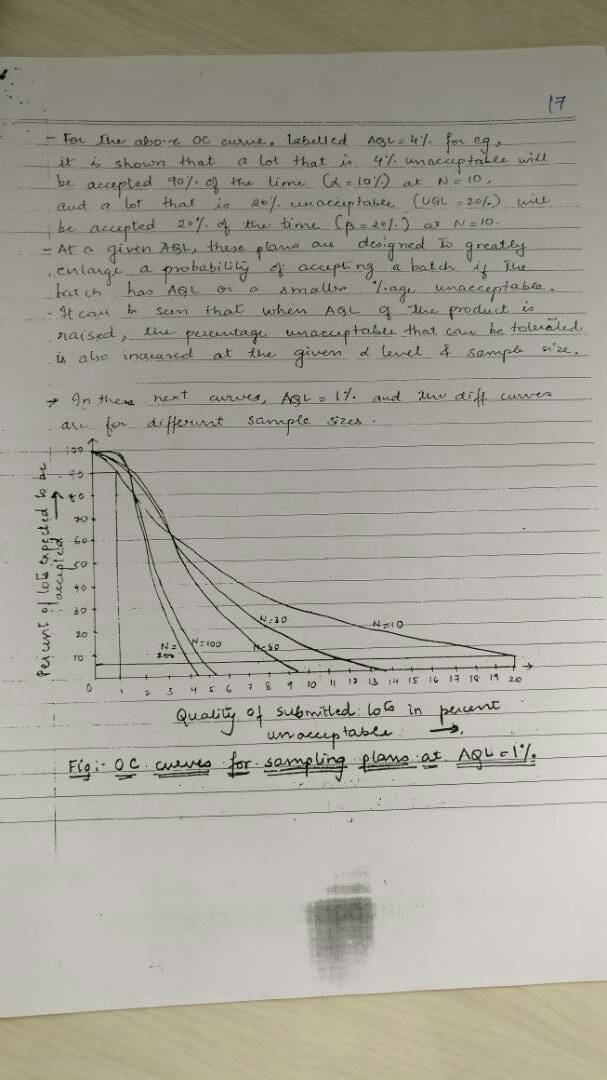 17
- For the above OC curve, labelled AQL = 4% for eg,
it is shown that a lot that is 4% unacceptable will
be accepted 90% of the time (α = 10%) at N = 10,
and a lot that is 20% unacceptable (UQL = 20%) will
be accepted 20% of the time (β = 20%) at N = 10.
- At a given AQL, these plans are designed to greatly
enlarge a probability of accepting a batch if the
batch has AQL or a smaller %age unacceptable.
- It can be seen that when AQL of the product is
raised, the percentage unacceptable that can be tolerated
is also increased at the given α level & sample size.
→ In these next curves, AQL = 1% and the diff curves
are for different sample sizes.
Percent of lots expected to be
accepted →
100
90
80
70
60
50
40
30
20
10
0
N=200
N=100
N=50
N=30
N=10
1 2 3 4 5 6 7 8 9 10 11 12 13 14 15 16 17 18 19 20
Quality of submitted lots in percent
unacceptable →
Fig:- OC curves for sampling plans at AQL = 1%